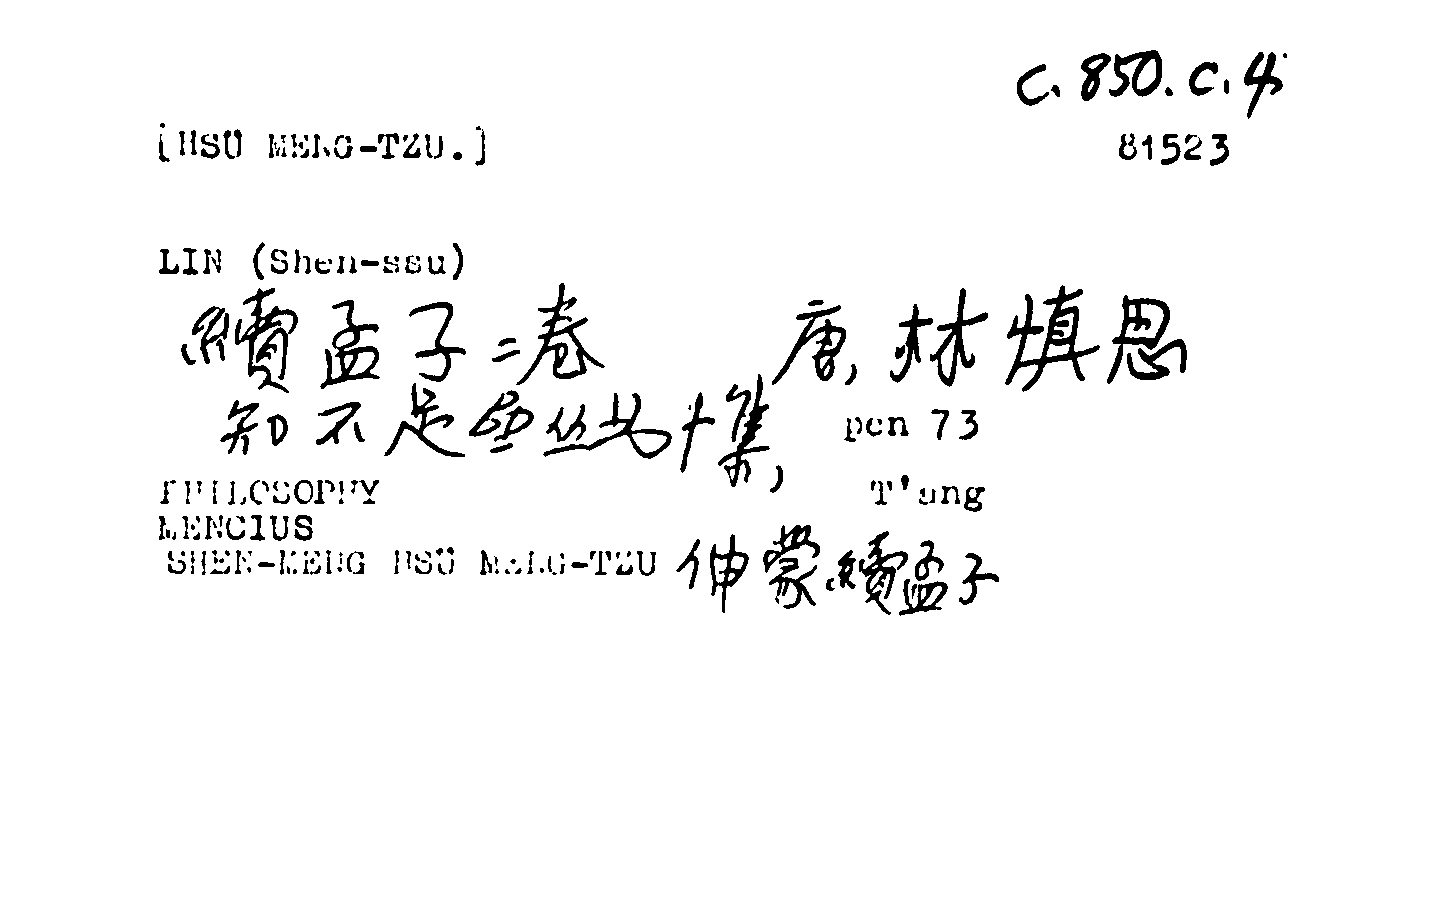 C. 850. C. 4
[HSÜ MENG-TZU.] 81523
LIN (Shen-ssu)
續孟子二卷 唐, 林慎思
知不足齋丛书十集, pen 73
PHILOSOPHY T'ang
MENCIUS
SHEN-MENG HSÜ MENG-TZU 伸蒙續孟子